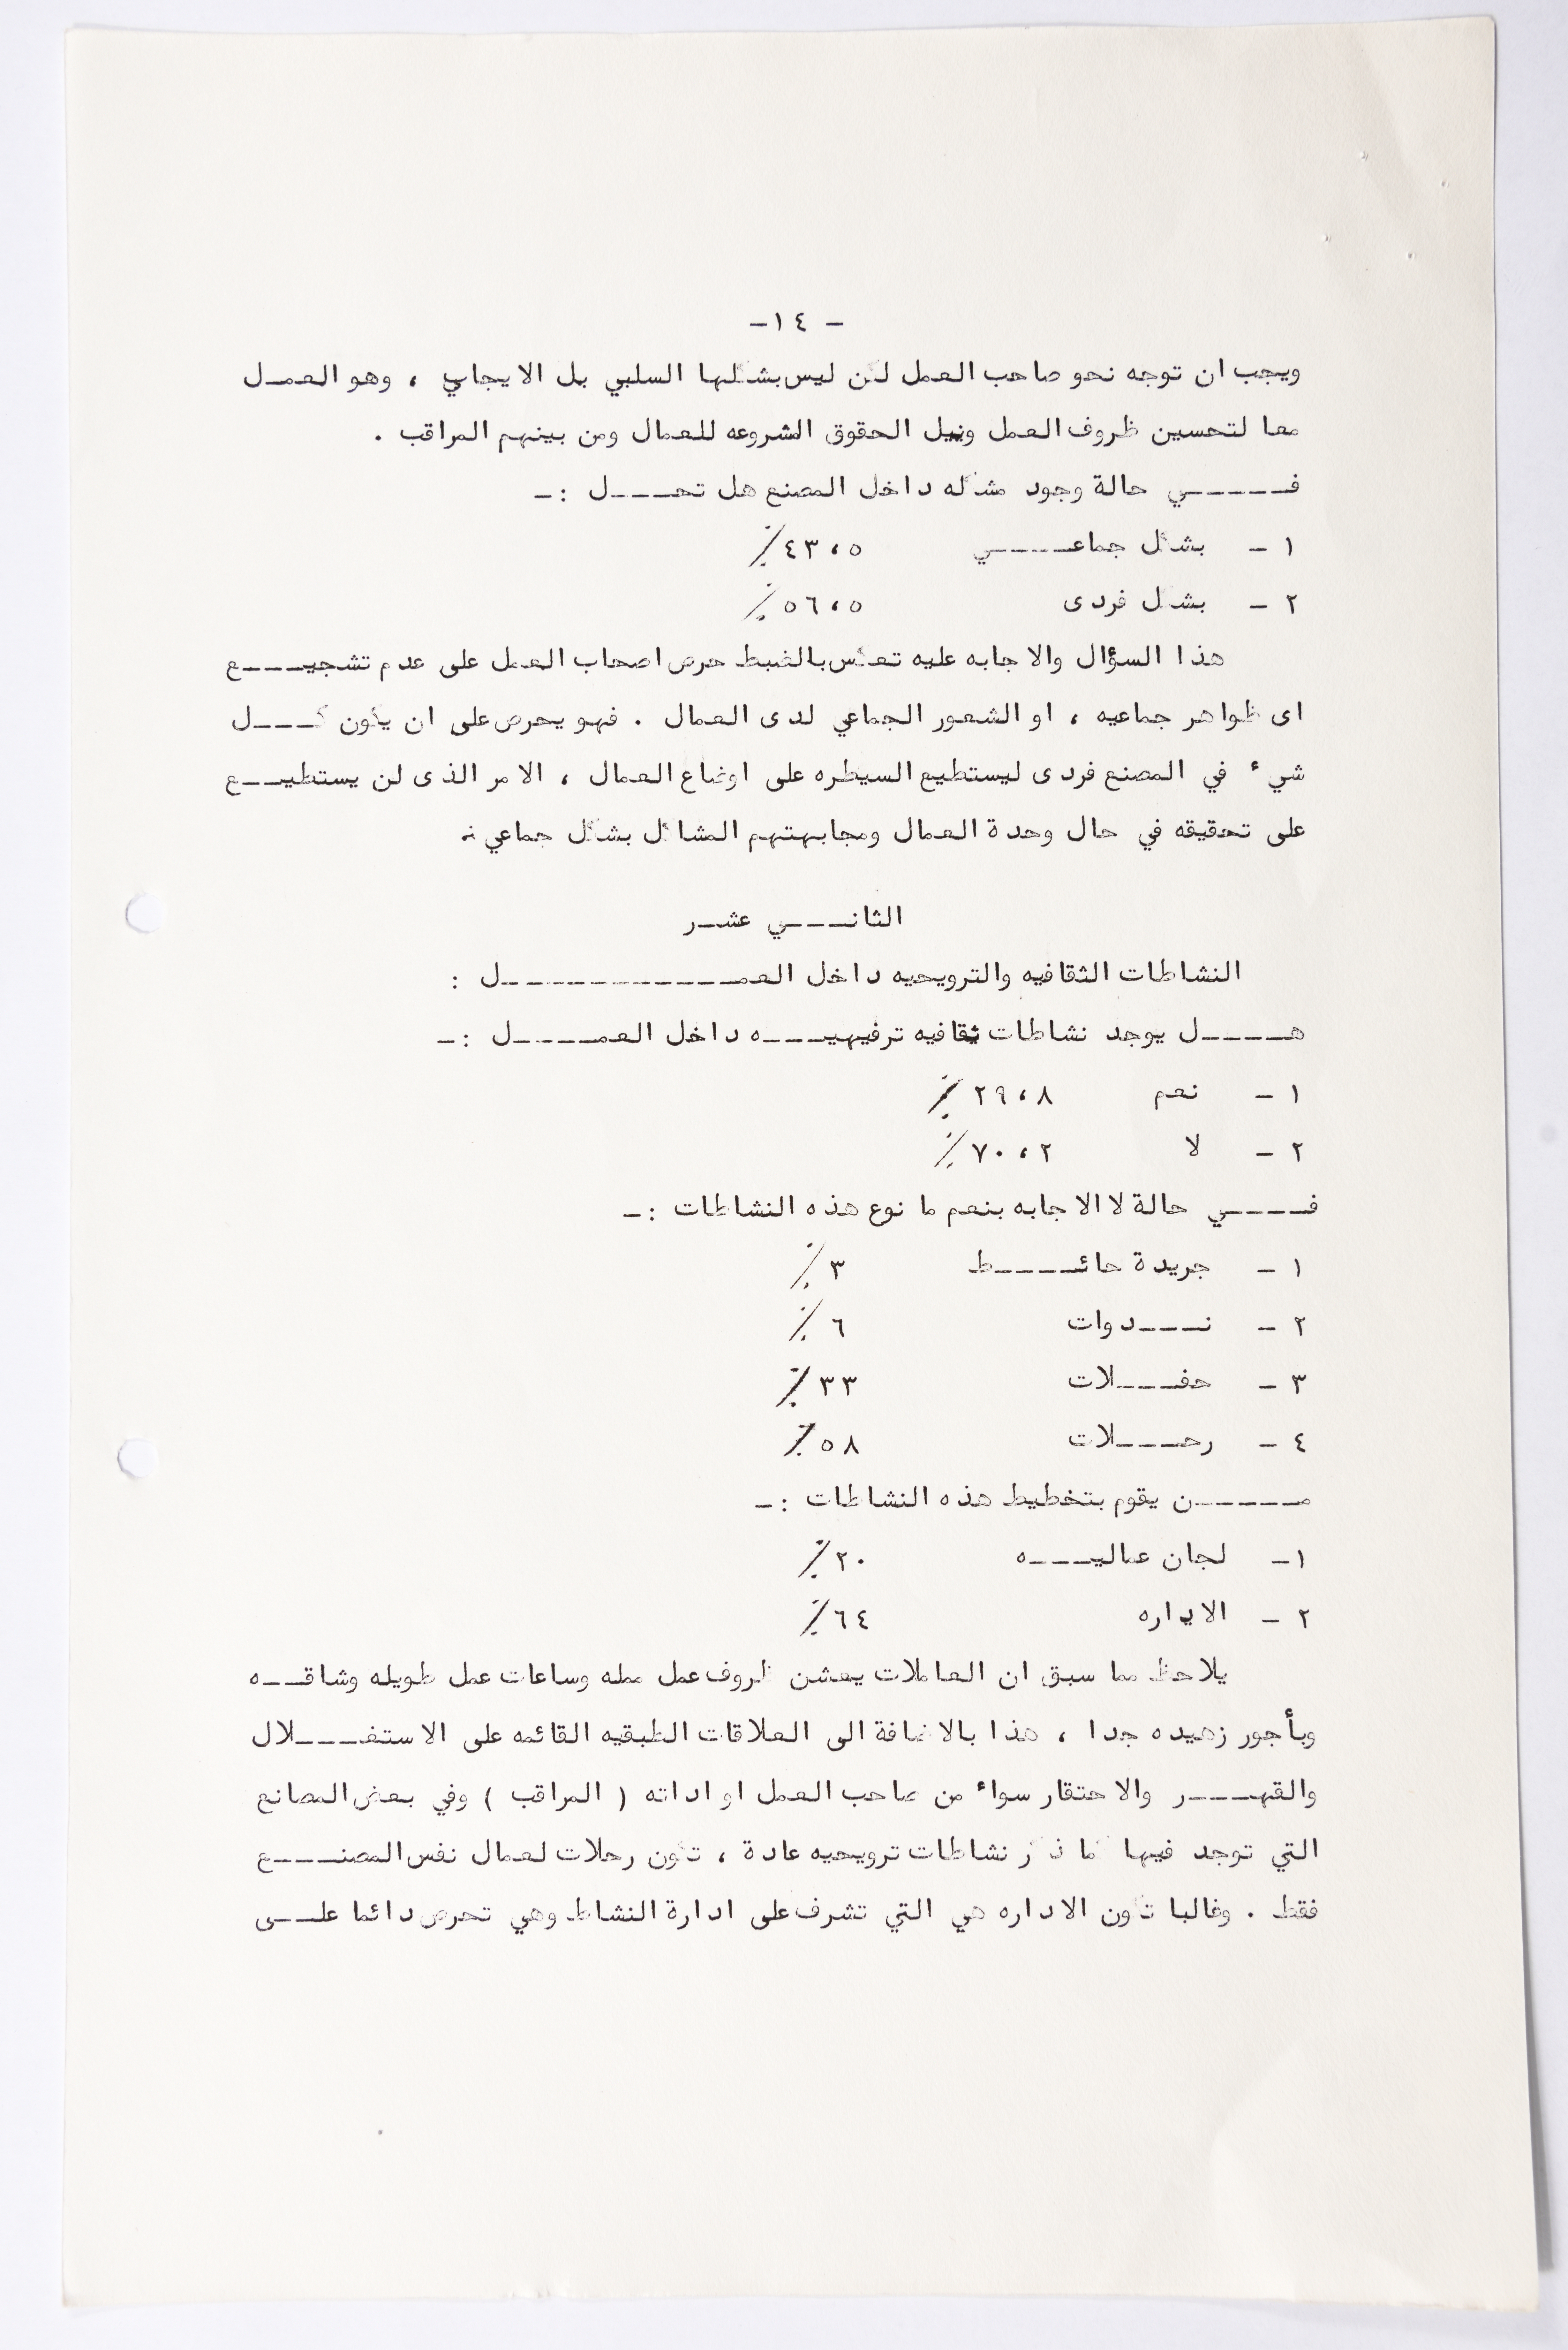 - ١٤-
ويجب ان توجه نحو صاحب العمل لكن ليس بشكلها السلبي بل الايجابي ، وهو العمل
معا لتحسين ظروف العمل ونيل الحقوق المشروعه للعمال ومن بينهم المراقب .
في حالة وجود مشكله داخل المصنع هل تحل :-
١ - بشكل جماعي ٤٣،٥٪
٢ - بشكل فردى ٥٦،٥٪
هذا السؤال والاجابه عليه تعكس بالضبط حرص اصحاب العمل على عدم تشجيع
اى ظواهر جماعيه ، او الشعور الجماعي لدى العمال . فهو يحرص على ان يكون كل
شيء في المصنع فردى ليستطيع السيطره على اوضاع العمال ، الامر الذى لن يستطيع
على تحقيقه في حال وحدة العمال ومجابهتهم المشاكل بشكل جماعي .
الثاني عشر
النشاطات الثقافيه والترويحيه داخل العمل :
هل يوجد نشاطات ثقافيه ترفيهيه داخل العمل :-
١ - نعم ٢٩،٨٪
٢ - لا ٧٠،٢٪
في حالة لا الاجابه بنعم ما نوع هذه النشاطات :-
١ - جريدة حائط ٣٪
٢ - ندوات ٦٪
٣ - حفلات ٣٣٪
٤ - رحلات ٥٨٪
من يقوم بتخطيط هذه النشاطات :-
١- لجان عماليه ٢٠٪
٢ - الاداره ٦٤٪
يلاحظ مما سبق ان العاملات يعشن ظروف عمل ممله وساعات عمل طويله وشاقه
وبأجور زهيده جدا ، هذا بالاضافة الى العلاقات الطبقيه القائمه على الاستغلال
والقهر والاحتقار سواء من صاحب العمل او اداته ( المراقب ) وفي بعض المصانع
التي توجد فيها كما ذكر نشاطات ترويحيه عادة ، تكون رحلات لعمال نفس المصنع
فقط . وغالبا تكون الاداره هي التي تشرف على ادارة النشاط وهي تحرص دائما على